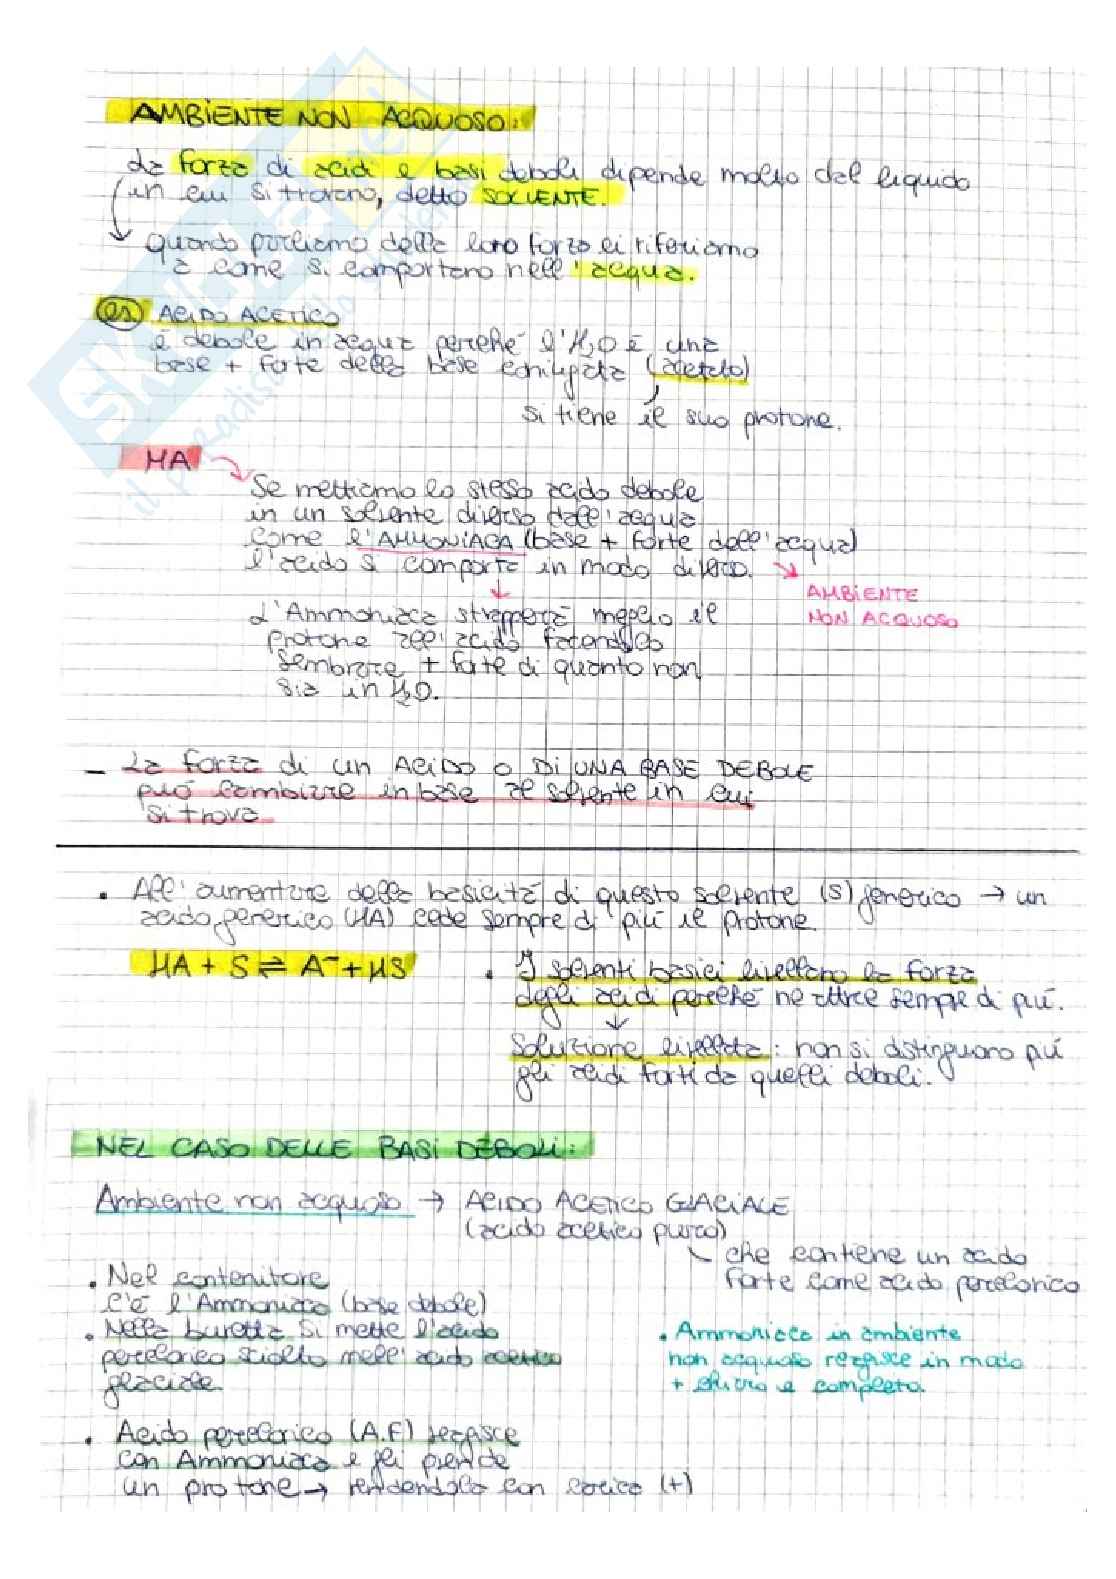 AMBIENTE NON ACQUOSO:
La forza di acidi e basi deboli dipende molto dal liquido
in cui si trovano, detto SOLVENTE.
quando parliamo della loro forza ci riferiamo
a come si comportano nell'acqua.
es. ACIDO ACETICO
è debole in acqua perché l'H2O è una
base + forte della base coniugata (acetato)
si tiene il suo protone.
HA
Se mettiamo lo stesso acido debole
in un solvente diverso dall'acqua
come l'AMMONIACA (base + forte dell'acqua)
l'acido si comporta in modo diverso.
AMBIENTE
NON ACQUOSO
L'Ammoniaca strapperà meglio il
protone all'acido facendolo
sembrare + forte di quanto non
sia in H2O.
- La forza di un ACIDO O DI UNA BASE DEBOLE
può cambiare in base al solvente in cui
si trova
• All'aumentare della basicità di questo solvente (S) generico → un
acido generico (HA) cede sempre di più il protone.
HA + S ⇌ A⁻ + HS
• I solventi basici livellano la forza
degli acidi perché ne attrae sempre di più.
Soluzione livellata: non si distinguono più
gli acidi forti da quelli deboli.
NEL CASO DELLE BASI DEBOLI:
Ambiente non acquoso → ACIDO ACETICO GLACIALE
(acido acetico puro)
che contiene un acido
forte come acido perclorico
• Nel contenitore
c'è l'Ammoniaca (base debole)
• Nella buretta si mette l'acido
perclorico sciolto nell'acido acetico
glaciale
• Ammoniaca in ambiente
non acquoso reagisce in modo
+ chiaro e completo.
• Acido perclorico (A.F) reagisce
con Ammoniaca e gli prende
un protone → rendendola con carica (+)